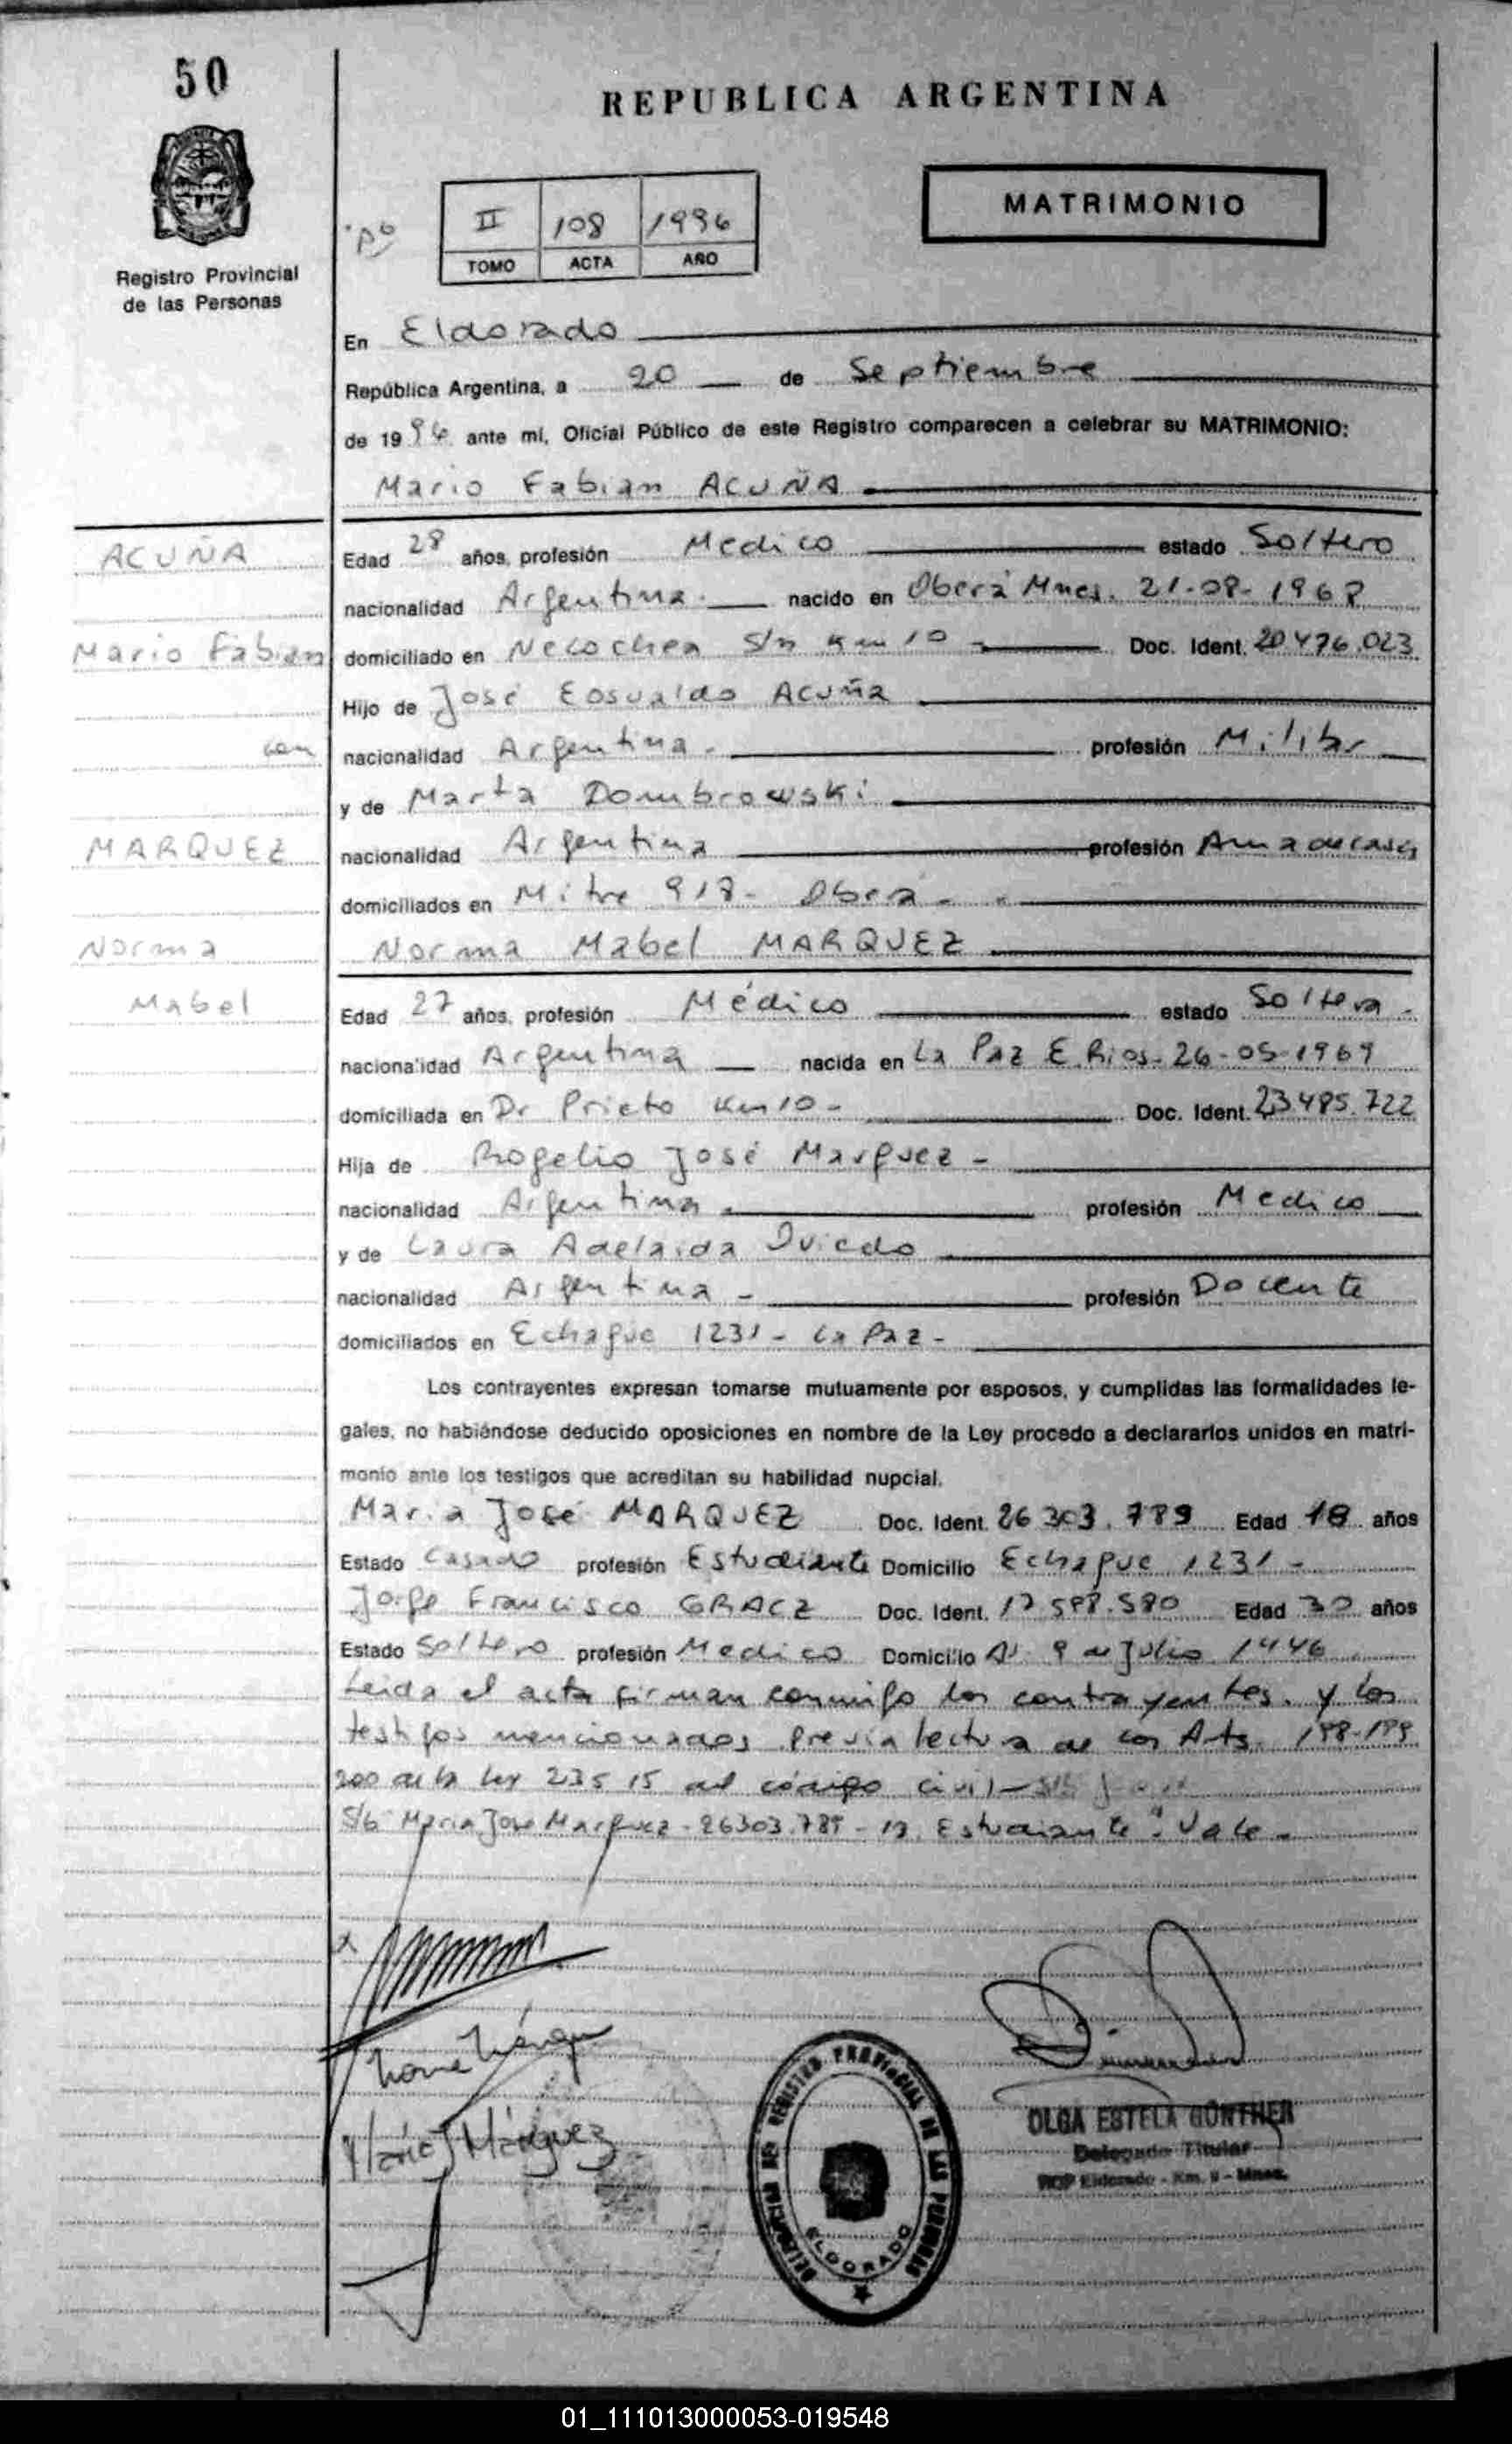 50
REPUBLICA ARGENTINA
MATRIMONIO
II 108 1996
TOMO ACTA AÑO
Registro Provincial
de las Personas
En Eldorado
República Argentina, a 20 de Septiembre
de 1996 ante mi, Oficial Público de este Registro comparecen a celebrar su MATRIMONIO:
Mario Fabian ACUÑA
ACUÑA
Mario Fabian
con
MARQUEZ
Norma
Mabel
Edad 28 años, profesión Medico estado Soltero
nacionalidad Argentina. nacido en Oberá Mnes. 21-08-1968
domiciliado en Necochea S/n Km 10 - Doc. Ident. 20.476.023
Hijo de José Eosvaldo Acuña
nacionalidad Argentina. profesión Militar
y de Marta Dombrowski
nacionalidad Argentina profesión Ama de casa
domiciliados en Mitre 918 - Oberá -
Norma Mabel MARQUEZ
Edad 27 años, profesión Médico estado Soltera -
nacionalidad Argentina nacida en La Paz E. Rios. 26-05-1969
domiciliada en Dr Prieto Km 10 - Doc. Ident. 23.485.722
Hija de Rogelio José Marquez -
nacionalidad Argentina. profesión Medico
y de Laura Adelaida Oviedo
nacionalidad Argentina - profesión Docente
domiciliados en Echague 1231 - La Paz -
Los contrayentes expresan tomarse mutuamente por esposos, y cumplidas las formalidades le-
gales, no habiéndose deducido oposiciones en nombre de la Ley procedo a declararlos unidos en matri-
monio ante los testigos que acreditan su habilidad nupcial.
Maria José MARQUEZ Doc. Ident. 26.303.789 Edad 18 años
Estado Casado profesión Estudiante Domicilio Echague 1231 -
Jorge Francisco GRACZ Doc. Ident. 17.598.580 Edad 30 años
Estado Soltero profesión Medico Domicilio Av. 9 de Julio 1446
Leida el acta firman conmigo los contrayentes. y los
testigos mencionados previa lectura de los Arts. 198-199
200 de la ley 23515 del código civil -
S/b "Maria Jose Marquez - 26303.789 - 18. Estudiante". Vale -
Maria J Márquez
DELEGACION DEL REGISTRO PROVINCIAL DE LAS PERSONAS
ELDORADO
OLGA ESTELA GÜNTHER
Delegado Titular
RCP Eldorado - Km. 9 - Mnes.
01_111013000053-019548